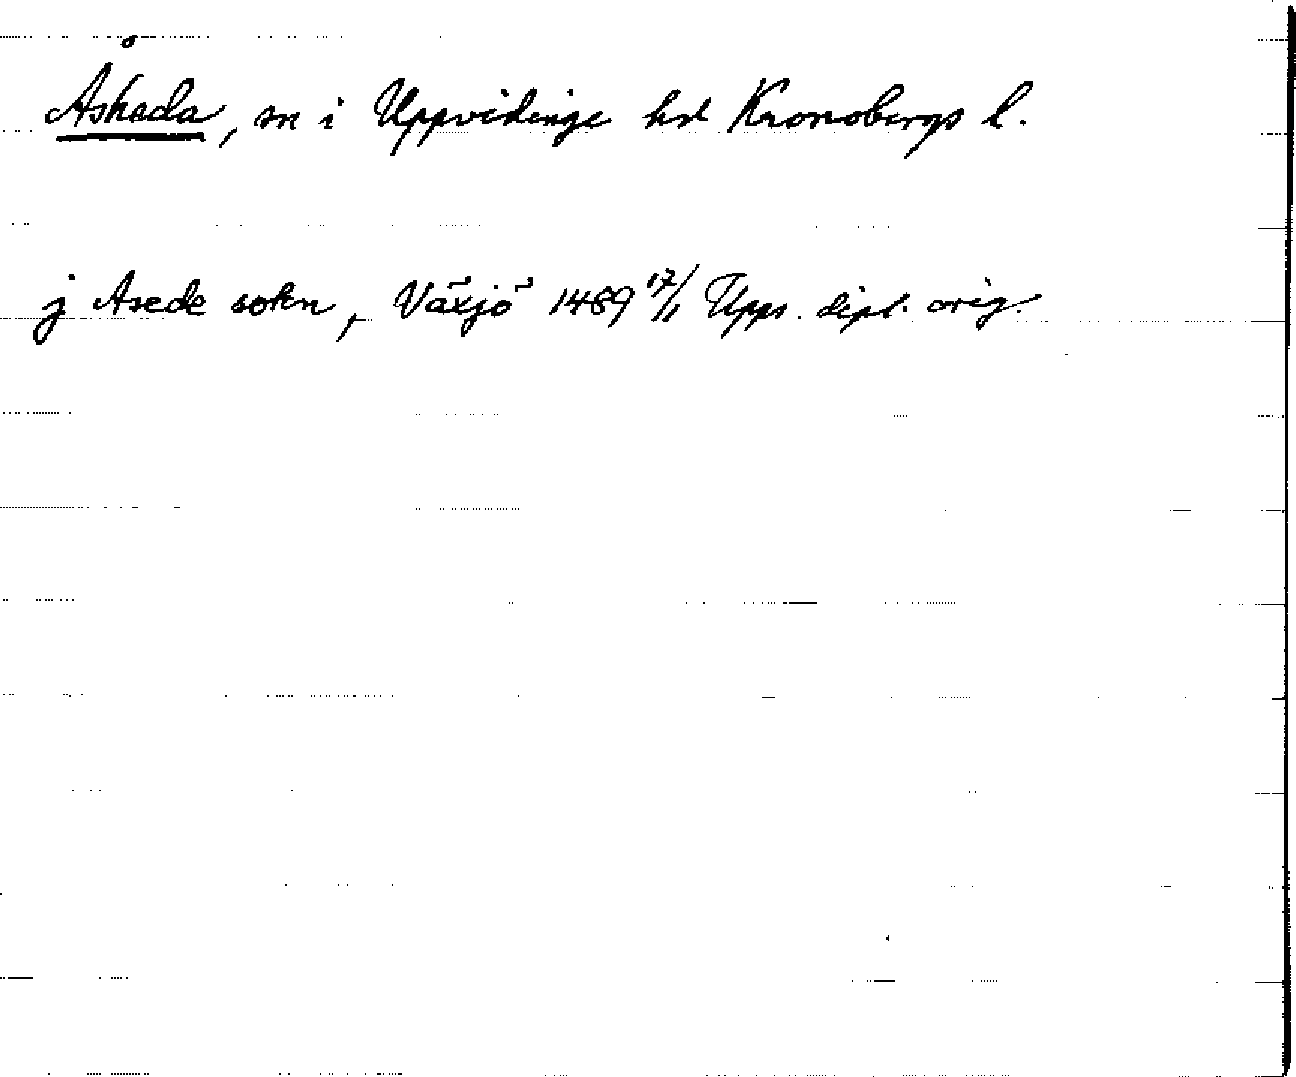 Åsheda, sn i Uppvidinge hd Kronobergs l.
j Asede sokn, Växjö 1489 17/1 Upps. dipl. orig.